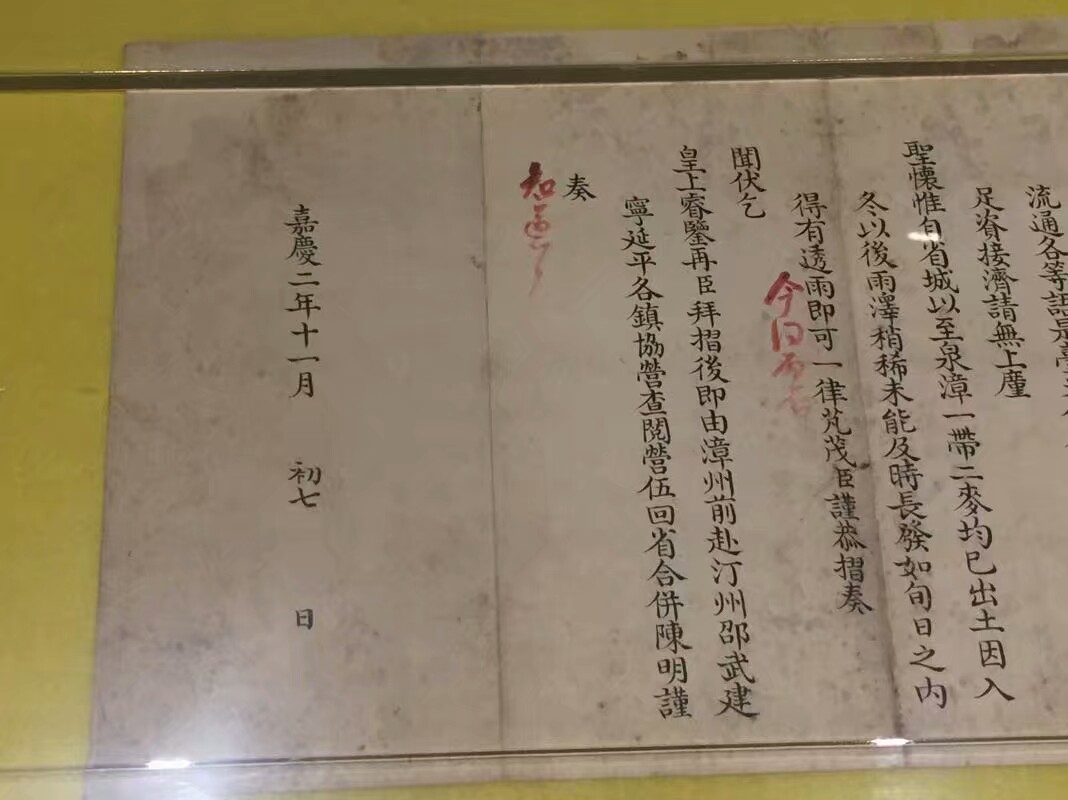 流通各等語是臺
足資接濟請無上廑
聖懷惟自省城以至泉漳一帶二麥均已出土因入
冬以後雨澤稍稀未能及時長發如旬日之內
得有透雨即可一律芃茂臣謹恭摺奏
今日
聞伏乞
皇上睿鑒再臣拜摺後即由漳州前赴汀州邵武建
寧延平各鎮協營查閱營伍回省合併陳明謹
奏
知道了
嘉慶二年十一月 初七 日